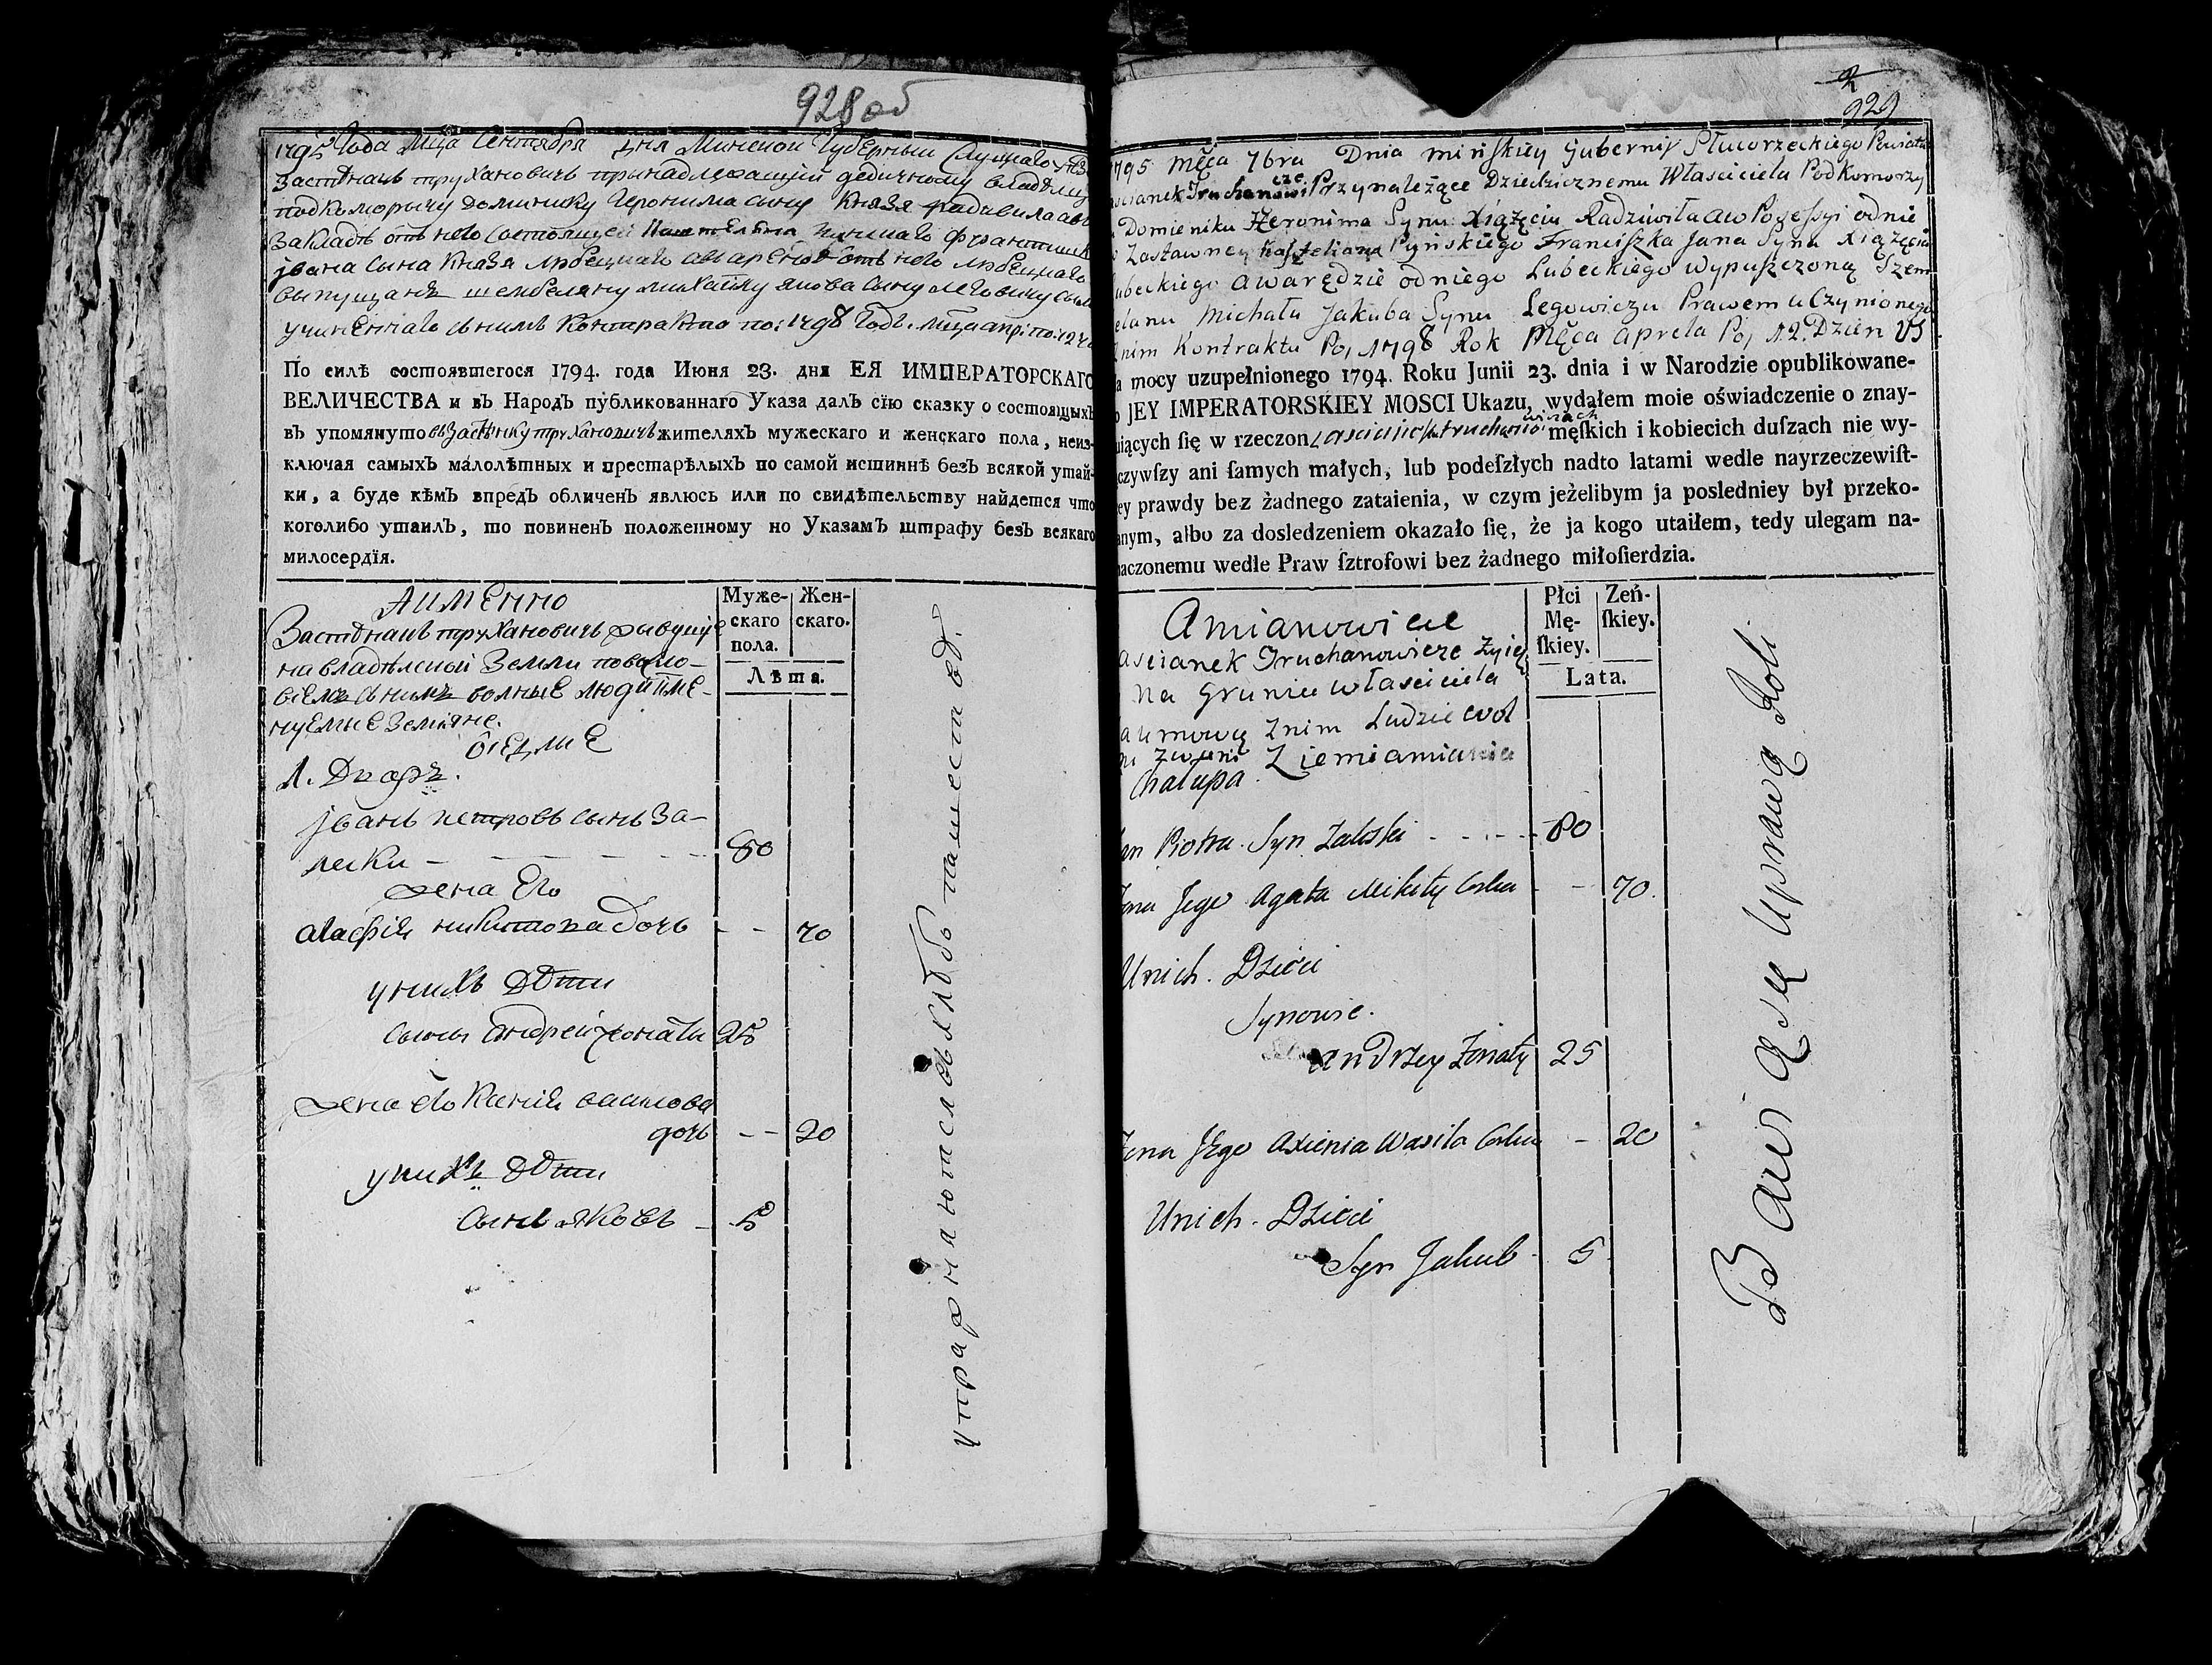 928 об
1795 Года Мца Сентября дня Минской Губернии Слуцкаго
Застѣнакъ трухановичъ принадлежащий дедичному владѣлцу
подкоморычу доминику Иеронима сыну Князя радивила
Закладѣ отъ него состоящей пинскаго Францишка
ивана сына Князя любецкаго отъ него любецкаго
выпущанъ шембеляну михайлу якова сыну леговичу
учиненнаго съ нимъ Контракта по: 1798 Годъ. мца апр: по: 12
По силѣ состоявшегося 1794. года Июня 23. дня ЕЯ ИМПЕРАТОРСКАГО
ВЕЛИЧЕСТВА и въ Народъ публикованнаго Указа далъ сїю сказку о состоящыхъ
въ упомянуто въ Застѣнку трухановичъ жителяхъ мужескаго и женскаго пола, неиз-
ключая самыхъ малолѣтных и престарѣлыхъ по самой истиннѣ безъ всякой утай-
ки, а буде кѣмъ впредъ обличенъ явлюсь или по свидѣтельству найдется что
коголибо утаилъ, то повиненъ положенному по Указамъ штрафу безъ всякаго
милосердїя.
Аименно
Застѣнакъ трухановичъ живущие
на владѣлской Земли поволо-
съ нимъ волные люди име-
нуемые Земяне.
оседлые
1. Дворъ.
Муже-
скаго
пола.
Жен-
скаго.
Лѣта.
иванъ петровъ сынъ За-
лески - - - - - 80
жена Его
агафия никитова дочь - - 70
у нихъ дѣти
сыны андрей жонати 25
жена его Ксения васшова
дочь - - 20
у нихъ дѣти
сынъ яковъ - 5
упражняются въ хлѣбопашеств
2
929
1795 Męca 7bra Dnia mińſkiey Gubernij Słucorzeckiego Powiatu
ascianek Truchanowicze Przynależące Dziedzicznemu Własciciela Podkomorzy
Domieniku Heronima Synu Xiążęciu Radziwiła aw Poſeſsyi odnie
Zastawney kaſzteliana Pynskiego Franciſzka Jana Syna Xiążęcia
ubeckiego awarędzie odniego Lubeckiego wypuſzczoną Szem
elanu Michału Jakuba Synu Legowiczu Prawem uczynionego
znim Kontraktu Po, 1798 Rok Męca aprela Po, 12. Dzien VS
a mocy uzupełnionego 1794. Roku Junii 23. dnia i w Narodzie opublikowane-
o JEY IMPERATORSKIEY MOSCI Ukazu, wydałem moie oświadczenie o znay-
uiących ſię w rzeczon męſkich i kobiecich duſzach nie wy-
czywſzy ani ſamych małych, lub podeſzłych nadto latami wedle nayrzeczewiſt-
ey prawdy bez żadnego zataienia, w czym jeżelibym ja posledniey był przeko-
anym, albo za dosledzeniem okazało ſię, że ja kogo utaiłem, tedy ulegam na-
aczonemu wedle Praw ſztrofowi bez żadnego miłoſierdzia.
Amianowicie
ascianek Truchanowicze Zyią
na Gruncie własciciela
aumową Znim Ludzie wol
ni Zwani Ziemiamianie
Chałupa
Płci
Mę-
ſkiey.
Zeń-
ſkiey.
Lata.
an Piotra Syn Zaleski - - - - 80
Zona Jego Agata Mikity Corka - - 70.
Unich Dzieci
Synowie.
andrzey Zonaty 25
Zona Jego Axienia Wasila Corka - 20
Unich Dzieci
Syn Jakub - 5
Bawią się uprawą Roli